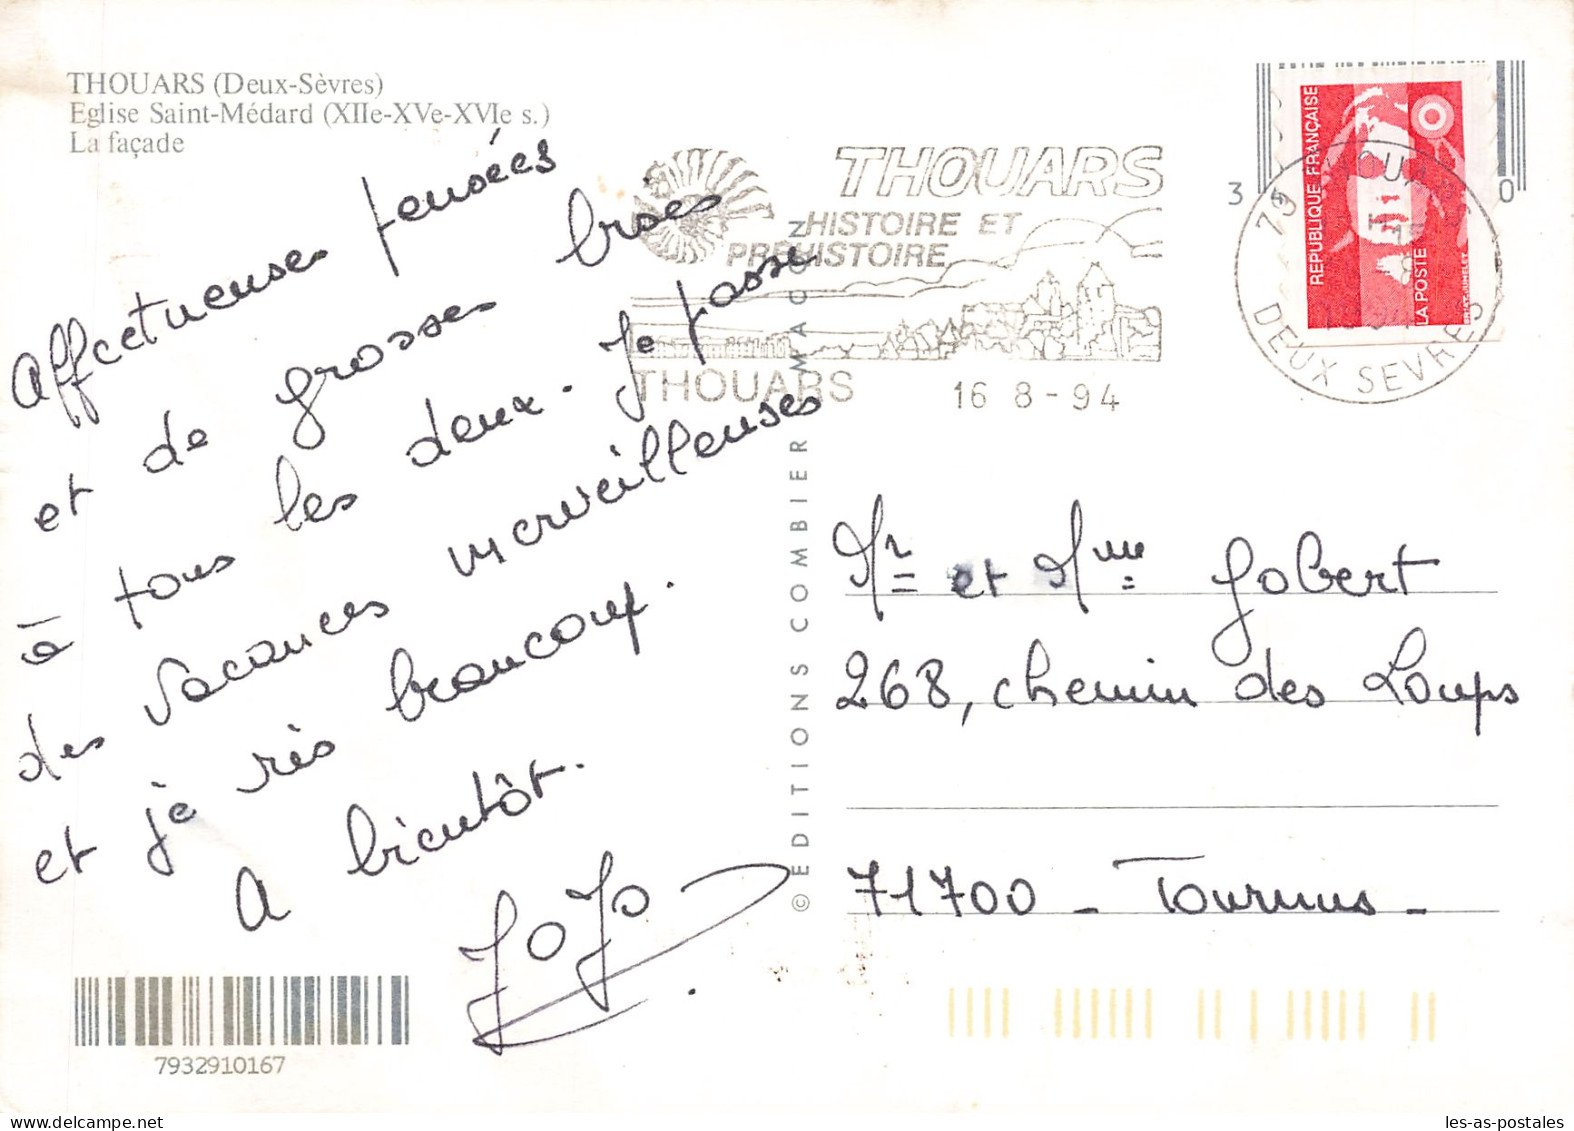 THOUARS (Deux-Sèvres)
Eglise Saint-Médard (XIIe-XVe-XVIe s.)
La façade
Affectueuses pensées
et de grosses bises
à tous les deux. Je passe
des vacances merveilleuses
et je ris beaucoup.
A bientôt.
JoJo
7932910167
© EDITIONS COMBIER MACON
THOUARS
HISTOIRE ET
PRÉHISTOIRE
THOUARS
16 8-94
3
0
79
DEUX SEVRES
REPUBLIQUE FRANÇAISE
LA POSTE
Mr et Mme Jobert
268, chemin des Loups
71700 - Tournus -
les-as-postales